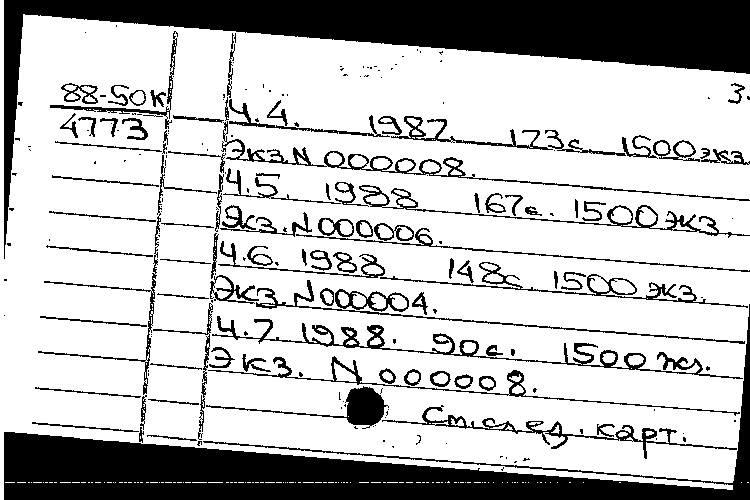 3.
88-50К
4773
Ч.4. 1987. 173с. 1500экз
Экз.N 000008.
Ч.5. 1988 167с. 1500экз.
Экз.N000006.
Ч.6. 1988. 148с. 1500 экз.
Экз.N000004.
Ч.7. 1988. 90с. 1500 экз.
Экз. N 000008.
См.след. карт.